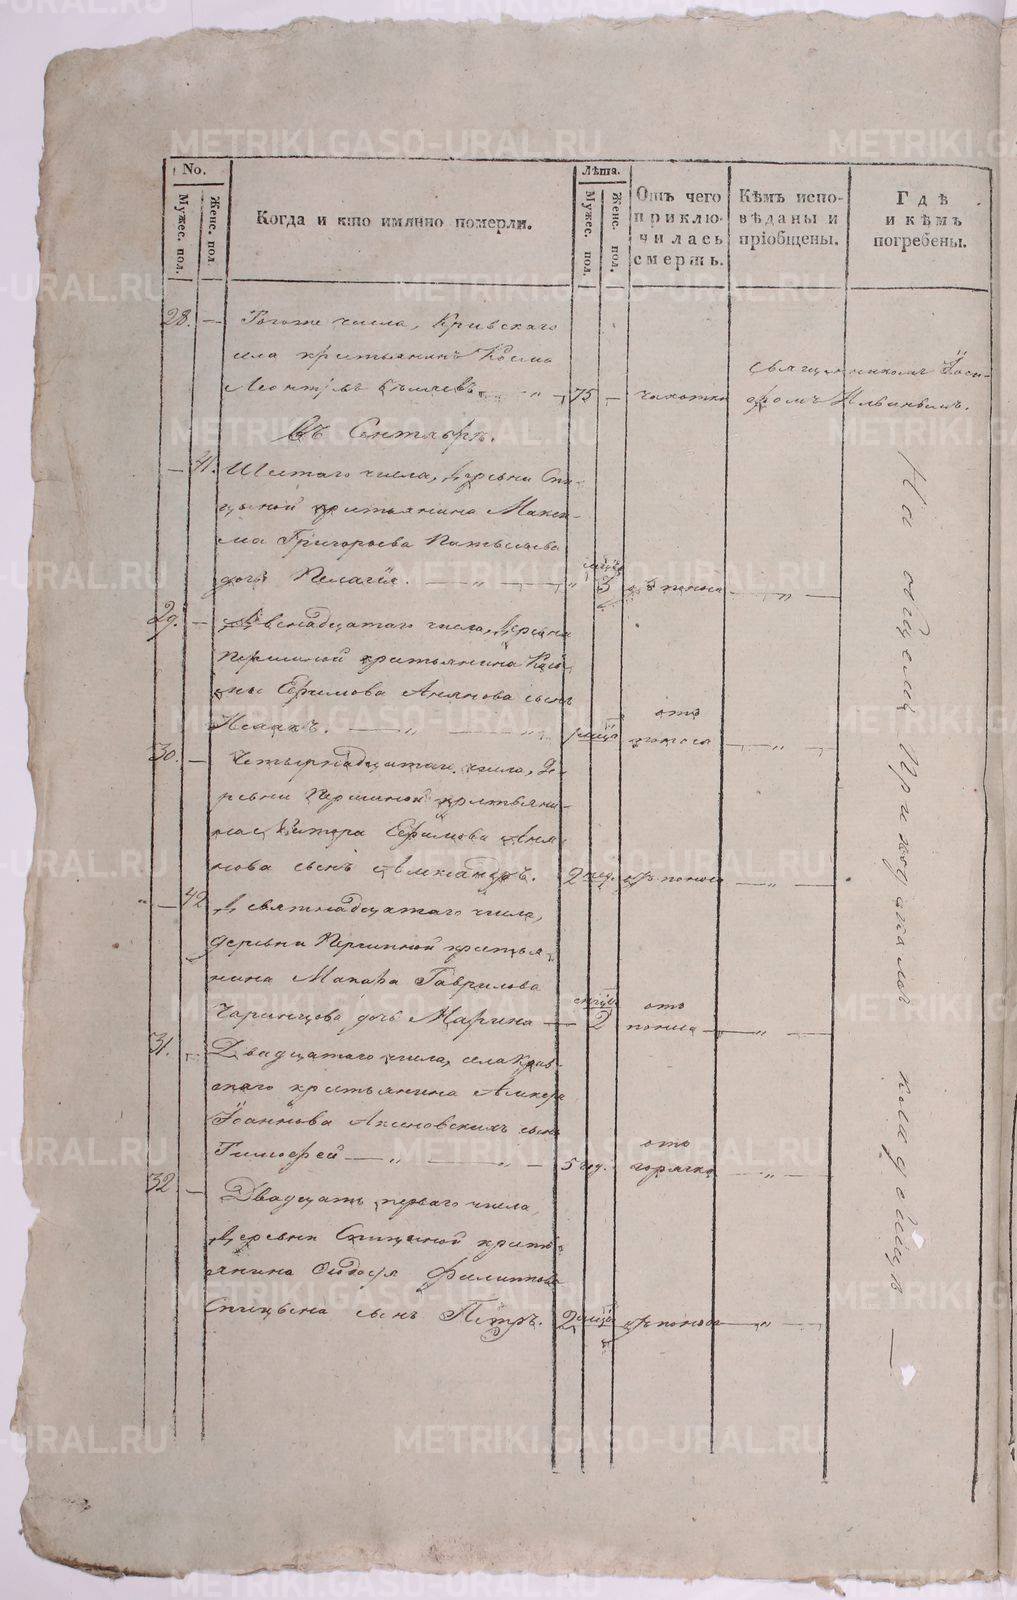 No.
Мужес. пол.
Женс. пол.
Когда и кто имянно померли.
Лѣта.
Мужес. пол.
Женс. пол.
Отъ чего
приклю-
чилась
смерть.
Кѣмъ испо-
вѣданы и
пріобщены.
Гдѣ
и кѣмъ
погребены.
28. — Тогоже числа, Кривскаго
села крестьянинъ Косма
Леонтьевъ — 75 — чахотки
священникомъ Іоси-
фомъ
Въ Сентябрѣ.
— 41. Шестаго числа, деревни Спи-
цыной крестьянина Макси-
ма Григорьева
дочь Пелагія. — мѣсц. 3 отъ поноса — „ —
29. — Двенадцатаго числа, деревни
Першиной крестьянина Кось-
мы Ефимова Анянова сынъ
Исаакъ. — „ — мѣсц. отъ поноса — „ —
30. — Четырнадцатаго числа, де-
ревни Першиной крестьяни-
на Ефимова Аня-
нова сынъ Александръ. 2 нед. отъ поноса — „ —
— 42 Девятнадцатаго числа,
деревни Першиной крестья-
нина Макара Гаврилова
дочь Марина — мѣсц. 2 отъ поноса — „ —
31. Двадцатаго числа, села Крив-
скаго крестьянина
Іоаннова сынъ
Тимофей — „ — „ — 5 год. отъ горячки — „ —
32 — Двадцать перваго числа,
деревни Спицыной кресть-
янина Феодосія Филиппова
Спицына сынъ Петръ. 2 мѣсц. отъ поноса — „ —
На общемъ Приходскомъ кладбищѣ —
METRIKI.GASO-URAL.RU